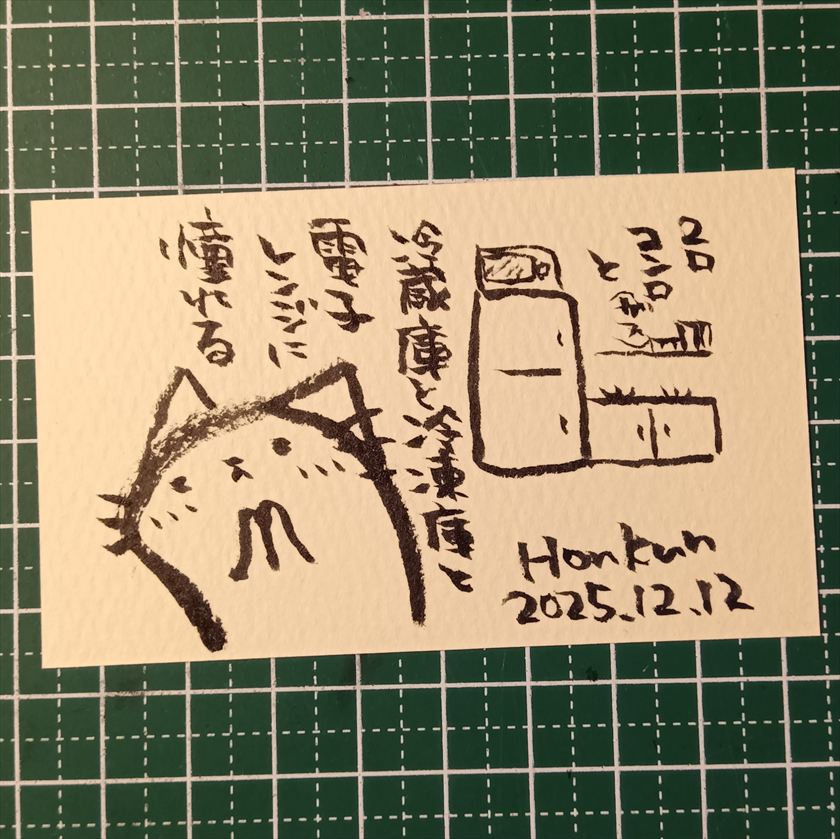 2口
コンロ
と
冷蔵庫と冷凍庫と
電子
レンジに
憧れる
Honkun
2025.12.12